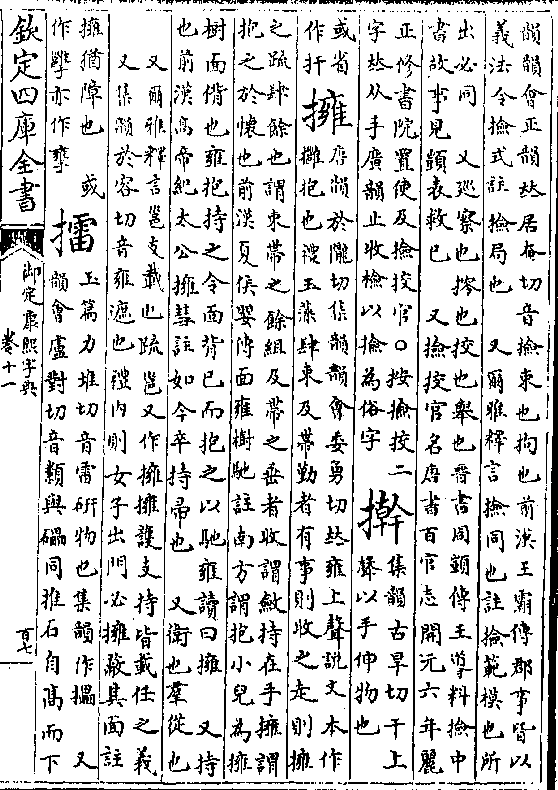 韻韻會正韻𠀤居奄切音撿束也拘也前漢王霸傳郡事皆以
義法令撿式註撿局也　又爾雅釋言撿同也註撿範模也所
出必同　又巡察也𢱧也挍也舉也晉書周顗傳王導料撿中
書故事見顗表救己　又撿挍官名唐書百官志開元六年麗
正修書院置使及撿挍官○按撿挍二
字𠀤从手廣韻止收檢以撿為俗字
擀
集韻古旱切干上
聲以手伸物也
或省
作扞
擁
唐韻於隴切集韻韻會委勇切𠀤雍上聲說文本作
㩴抱也禮玉藻肆束及帶勤者有事則收之走則擁
之疏肆餘也謂束帶之餘組及帶之垂者收謂斂持在手擁謂
抱之於懷也前漢夏侯嬰傳面雍樹馳註南方謂抱小兒為擁
樹面偝也雍抱持之令面背己而抱之以馳雍讀曰擁　又持
也前漢高帝紀太公擁彗註如今卒持帚也　又衛也羣從也
又爾雅釋言邕支載也疏邕又作擁擁護支持皆載任之義
又集韻於容切音雍遮也禮內則女子出門必擁蔽其面註
擁猶障也　或
作亦作
擂
玉篇力堆切音雷硏物也集韻作攂　又
韻會盧對切音類與礧同推石自高而下
欽定四庫全書
御定康熙字典
卷十一
百七